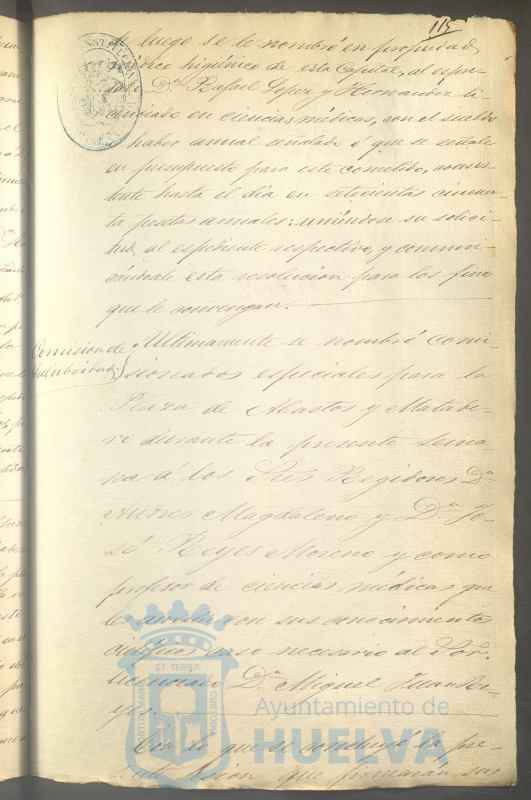 115
de luego se le nombró en propiedad
médico higiénico de esta Capital, al espre-
sado Dn. Rafael Lopez y Hernandez li-
cenciado en ciencias médicas, con el sueldo
ó haber anual señalado ó que se señale
en presupuesto para este cometido, consis-
tente hasta el dia en setecientas cincuen-
ta pesetas anuales: uniéndose su solici-
tud, al espediente respectivo, y comuni-
cándosele esta resolucion para los fines
que le convengan.
Comision de
salubridad.
Ultimamente se nombró comi-
sionados especiales para la
Plaza de Abastos y Matade-
ro durante la presente sema-
na á los Sres. Regidores Dn.
Andres Magdaleno y Dn. Jo-
sé Reyes Moreno y como
profesor de ciencias médicas que
les auxilie con sus conocimientos
cientificos caso necesario al Sor.
Licenciado Dn. Miguel Juan Re-
yes.
Con lo que se concluyó la pre-
sente sesion que firmaran sus
ET TERRÆ
CUSTODIA
Ayuntamiento de
HUELVA